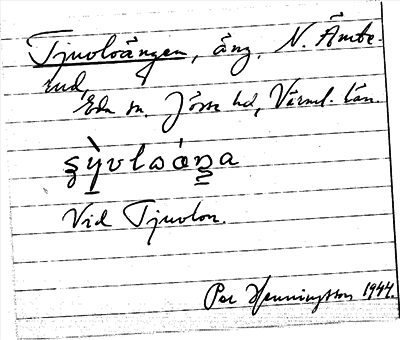 Tjuvloängen, äng, N. Ämte-
rud,
Eda sn. Jösse hd, Värml. län.
Vid Tjuvlon.
Per Henningsson 1944.